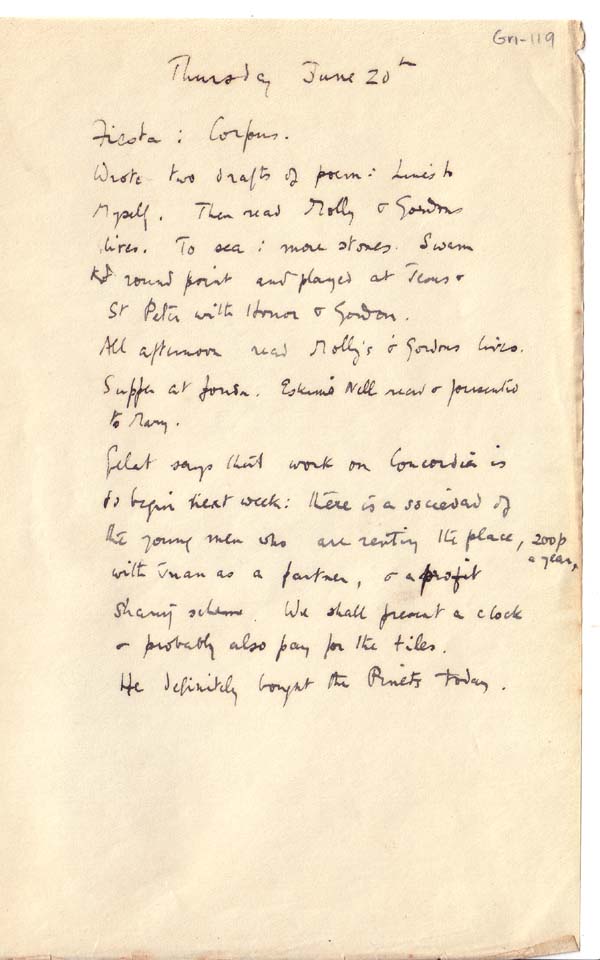 Gn-119
Thursday June 20th
Fiesta : Corpus.
Wrote two drafts of poem : Lines to
Myself. Then read Molly & Gordons
lives. To sea : more stones. Swam
round point and played at Jesus &
St Peter with Honor & Gordon.
All afternoon read Molly's & Gordons lives.
Supper at fonda. Eskimo Nell read & presented
to Mary.
Gelat says that work on Concordia is
to begin next week : there is a sociedad of
the young men who are renting the place, 200p
a year,
with Juan as a partner, & a profit
sharing scheme. We shall present a clock
& probably also pay for the tiles.
He definitely bought the Pinets today.